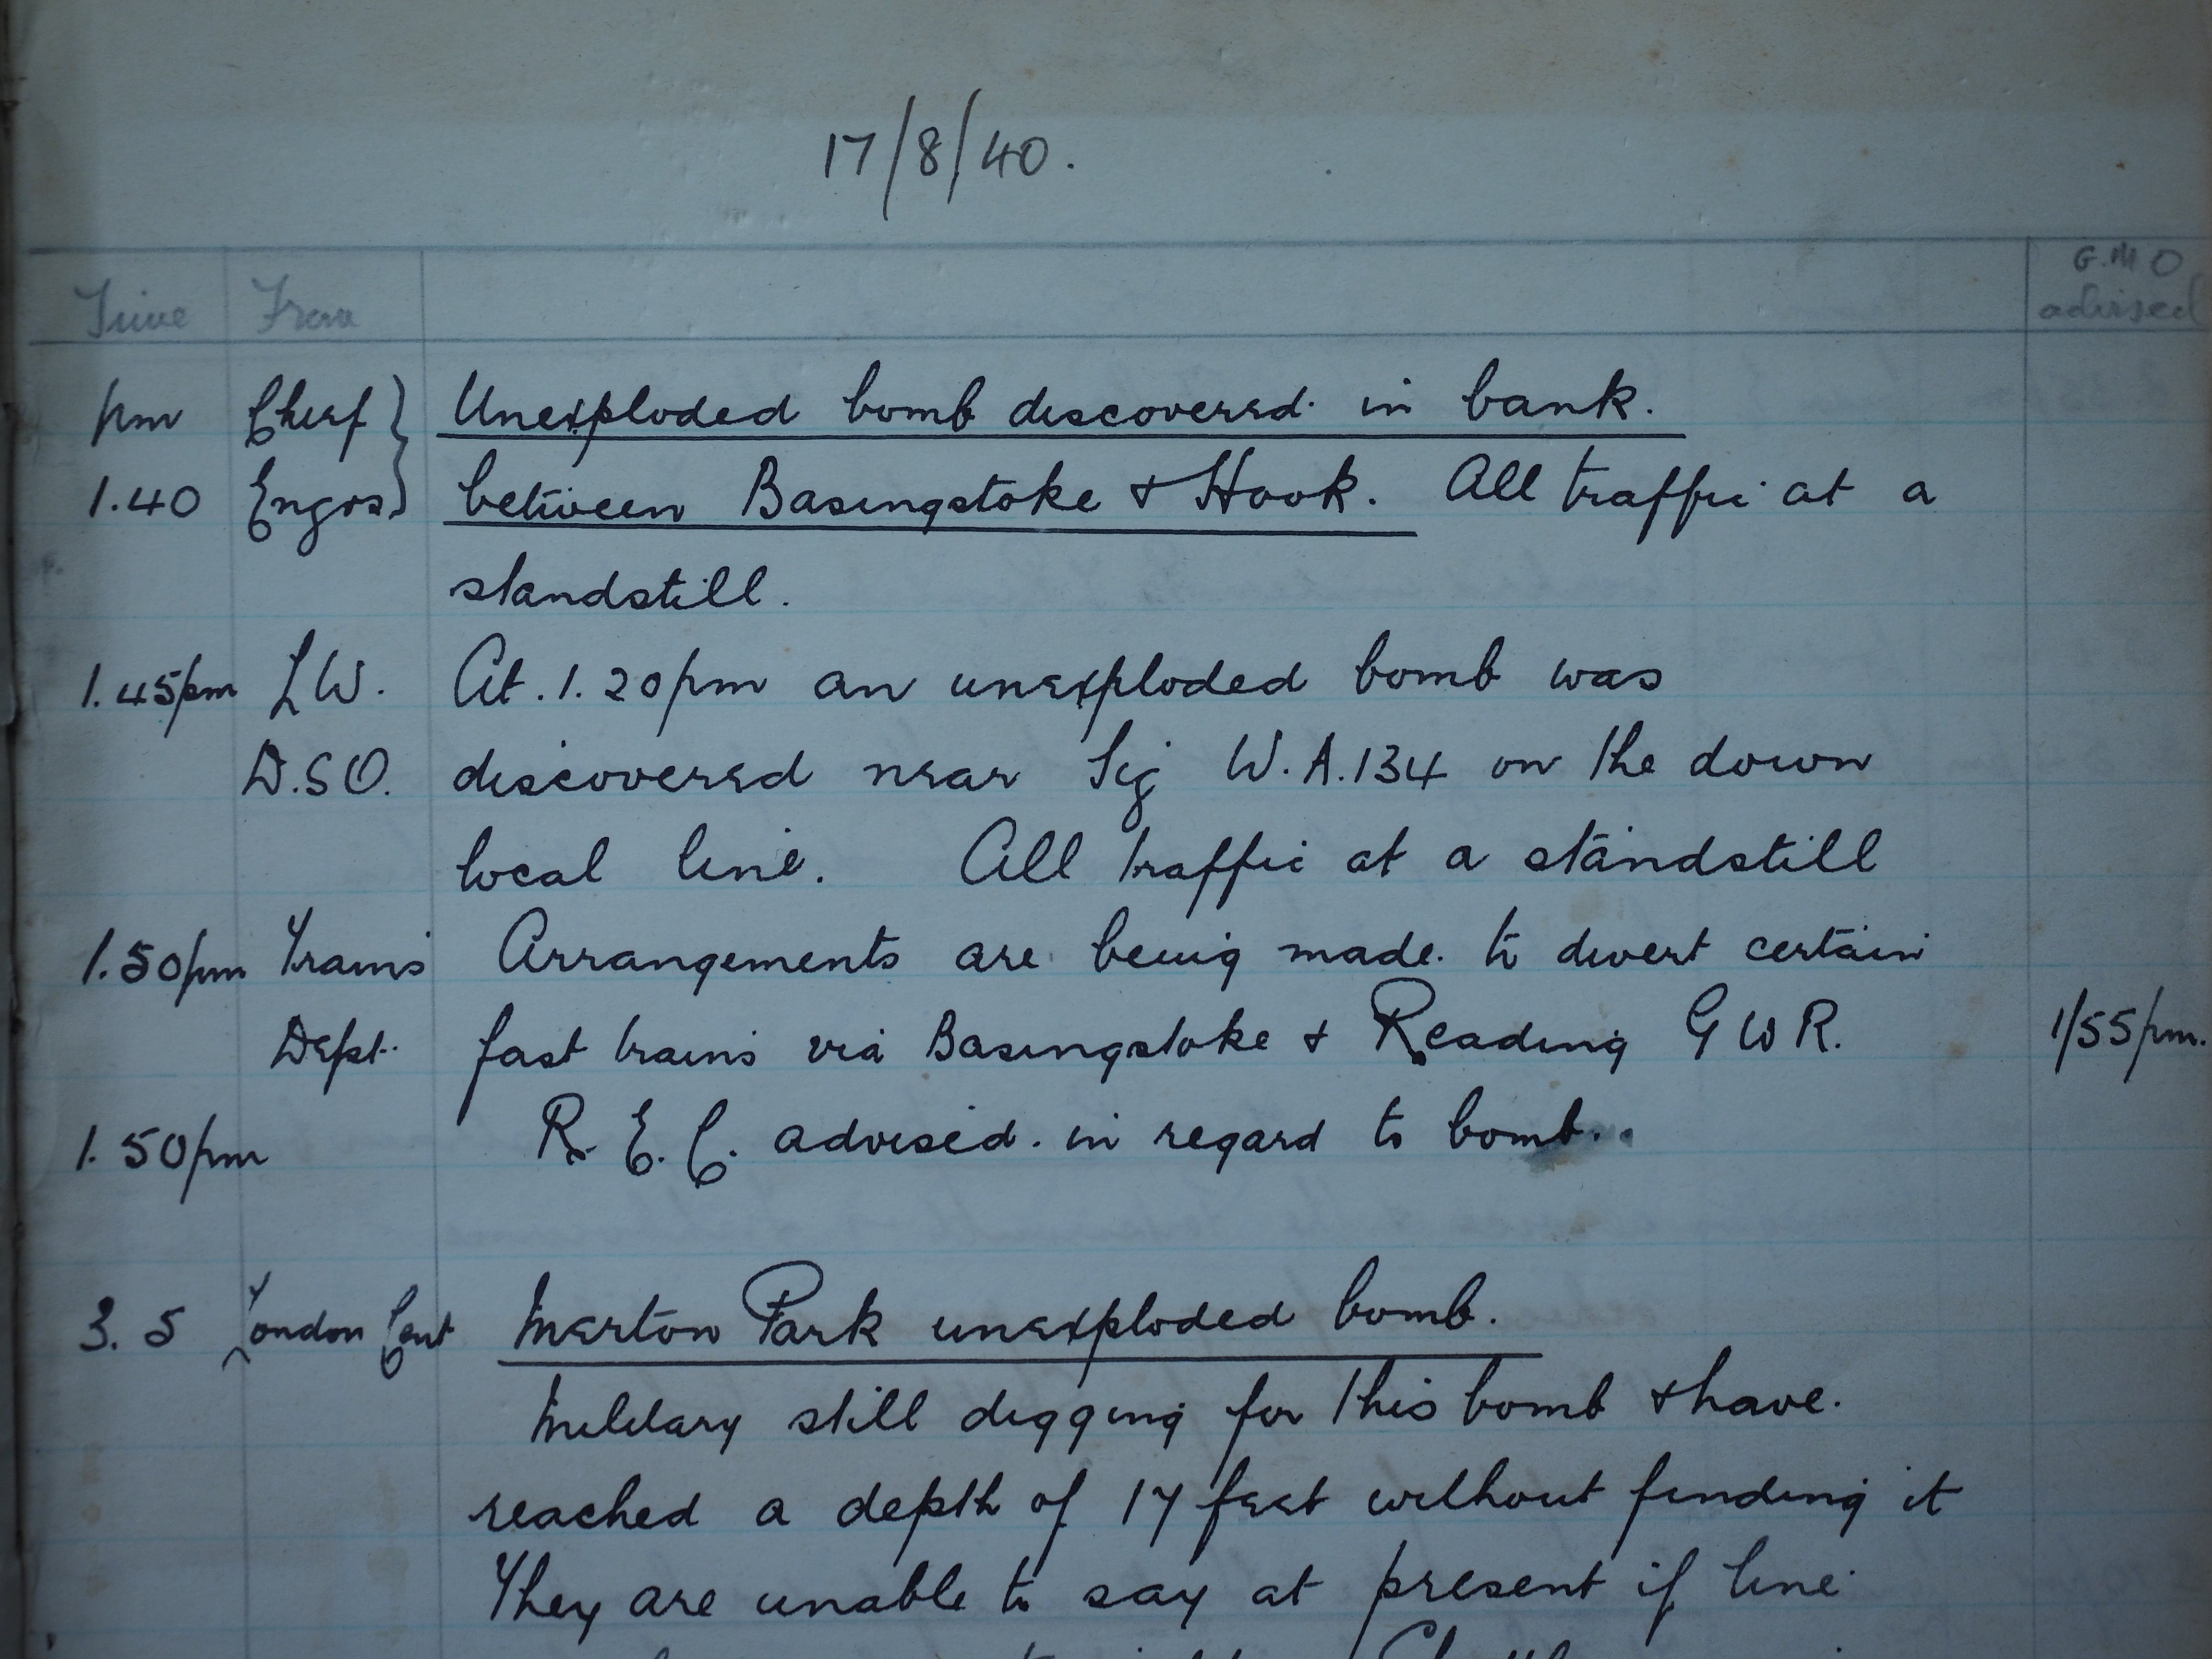 17/8/40.
Time From G.M O
advised
pm Chief } Unexploded bomb discovered in bank.
1.40 Engrs } between Basingstoke & Hook. All traffic at a
standstill.
1.45pm L W. At 1.20pm an unexploded bomb was
D.S O. discovered near Sig W.A.134 on the down
local line. All traffic at a standstill
1.50pm Trains Arrangements are being made to divert certain
Dept. fast trains via Basingstoke & Reading G W R. 1/55pm.
1.50pm R. E. C. advised in regard to bomb.
3.5 London Cent Merton Park unexploded bomb.
Military still digging for this bomb & have
reached a depth of 17 feet without finding it
They are unable to say at present if line